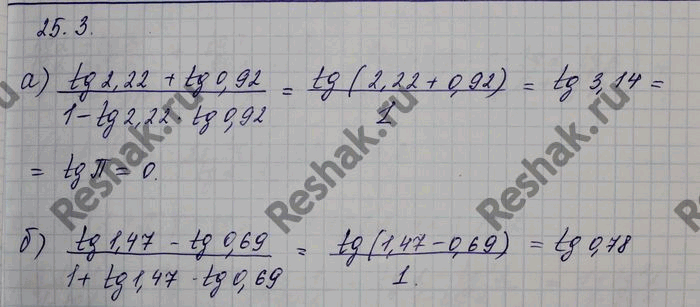 25.3.
а) tg 2,22 + tg 0,92 / 1 - tg 2,22 · tg 0,92 = tg (2,22 + 0,92) / 1 = tg 3,14 =
= tg π = 0.
б) tg 1,47 - tg 0,69 / 1 + tg 1,47 · tg 0,69 = tg (1,47 - 0,69) / 1. = tg 0,78
Reshak.ru
Reshak.ru
Reshak.ru
Reshak.ru